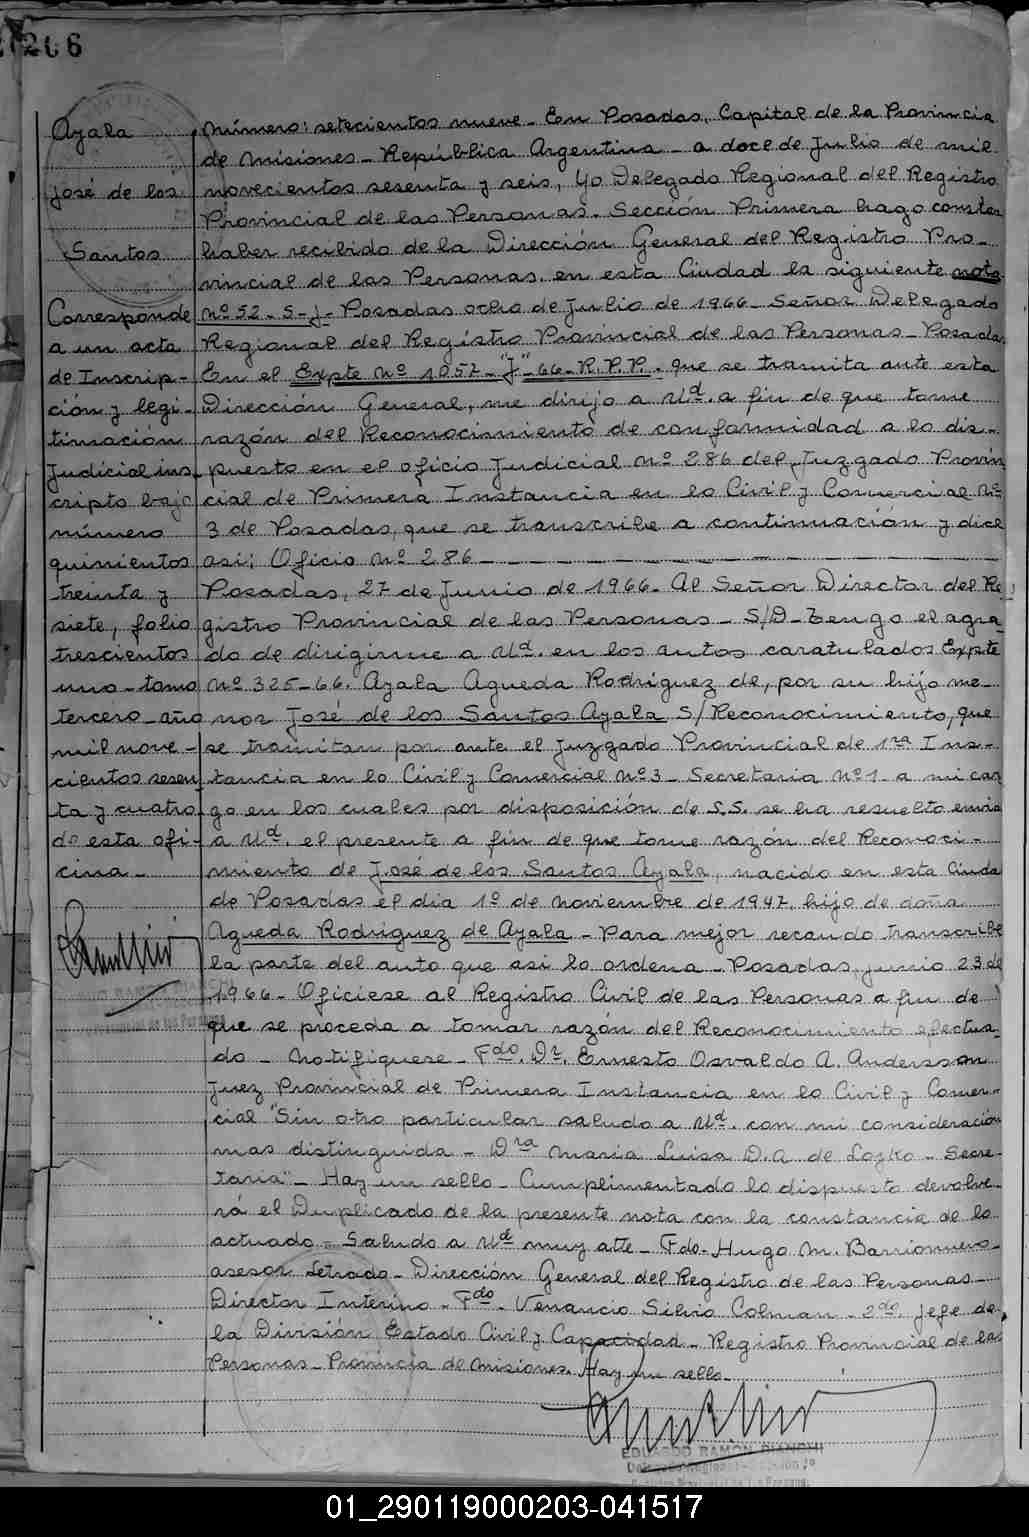 206
Ayala
José de los
Santos
Corresponde
a un acta
de Inscrip-
ción y legi-
timación
Judicial ins-
cripto bajo
número
quinientos
treinta y
siete, folio
trescientos
uno - tomo
tercero - año
mil nove-
cientos sesen-
ta y cuatro
de esta ofi-
cina -
Número: setecientos nueve - En Posadas, Capital de la Provincia
de Misiones - República Argentina - a doce de Julio de mil
novecientos sesenta y seis, Yo Delegado Regional del Registro
Provincial de las Personas. Sección Primera hago constar
haber recibido de la Dirección General del Registro Pro-
vincial de las Personas, en esta Ciudad la siguiente nota
Nº 52 - S - J - Posadas ocho de Julio de 1966 - Señor Delegado
Regional del Registro Provincial de las Personas - Posadas
En el Expte Nº 1057 - "J" - 66 - R.P.P. que se tramita ante esta
Dirección General, me dirijo a Ud. a fin de que tome
razón del Reconocimiento de conformidad a lo dis-
puesto en el oficio Judicial Nº 286 del Juzgado Provin
cial de Primera Instancia en lo Civil y Comercial Nº
3 de Posadas, que se transcribe a continuación y dice
así: Oficio Nº 286
Posadas, 27 de Junio de 1966 - Al Señor Director del Re
gistro Provincial de las Personas - S/D - Tengo el agra
do de dirigirme a Ud. en los autos caratulados Expte
Nº 325-66. Ayala Agueda Rodríguez de, por su hijo me-
nor José de los Santos Ayala S/Reconocimiento, que
se tramitan por ante el Juzgado Provincial de 1ra Ins-
tancia en lo Civil y Comercial Nº 3 - Secretaria Nº 1 a mi car
go en los cuales por disposición de S.S. se ha resuelto envia
a Ud. el presente a fin de que tome razón del Reconoci-
miento de José de los Santos Ayala, nacido en esta Ciuda
de Posadas el día 1º de Noviembre de 1947, hijo de doña
Agueda Rodriguez de Ayala - Para mejor recaudo transcribe
la parte del auto que así lo ordena - Posadas, Junio 23 de
1966 - Oficiese al Registro Civil de las Personas a fin de
que se proceda a tomar razón del Reconocimiento efectua-
do - Notifiquese - Fdo. Dr. Ernesto Osvaldo A. Andersson
Juez Provincial de Primera Instancia en lo Civil y Comer-
cial "Sin otro particular saludo a Ud. con mi consideración
mas distinguida - Dra Maria Luisa D.A de Lozko - Secre-
taria" - Hay un sello - Cumplimentado lo dispuesto devolve-
rá el Duplicado de la presente nota con la constancia de lo
actuado - Saludo a Ud muy atte - Fdo - Hugo M. Barrionuevo
asesor Letrado - Dirección General del Registro de las Personas -
Director Interino - Fdo - Venancio Silvio Colman - 2do Jefe de
la División Estado Civil y Capacidad - Registro Provincial de las
Personas - Provincia de Misiones. Hay un sello -
EDUARDO RAMON BIANCHI
01_290119000203-041517